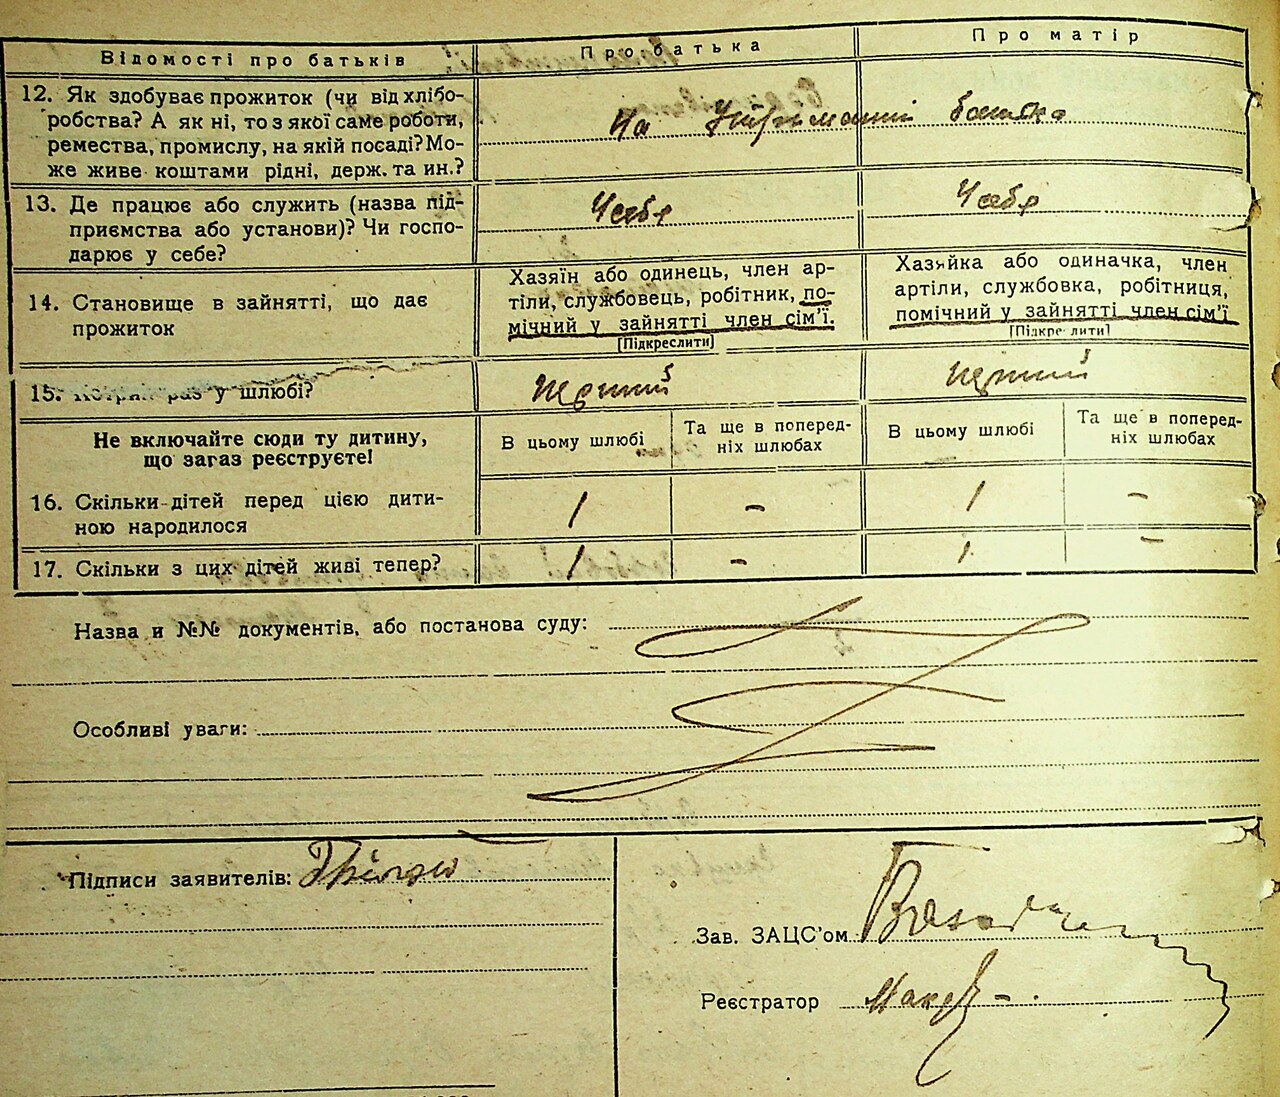 Відомості про батьків
Про батька
Про матір
12. Як здобуває прожиток (чи від хлібо-
робства? А як ні, то з якої саме роботи,
ремества, промислу, на якій посаді? Мо-
же живе коштами рідні, держ. та ин.?
На утриманні батька
13. Де працює або служить (назва під-
приємства або установи)? Чи госпо-
дарює у себе?
У себе
У себе
14. Становище в зайнятті, що дає
прожиток
Хазяїн або одинець, член ар-
тіли, службовець, робітник, по-
мічний у зайнятті член сім'ї.
[Підкреслити]
Хазяйка або одиначка, член
артіли, службовка, робітниця,
помічний у зайнятті член сім'ї
[Підкреслити]
15. Котрий раз у шлюбі?
перший
перший
Не включайте сюди ту дитину,
що загаз реєструєте!
В цьому шлюбі
Та ще в поперед-
ніх шлюбах
В цьому шлюбі
Та ще в поперед-
ніх шлюбах
16. Скільки дітей перед цією дити-
ною народилося
1 - 1 -
17. Скільки з цих дітей живі тепер?
1 - 1 -
Назва и №№ документів, або постанова суду:
Особливі уваги:
Підписи заявителів:
Зав. ЗАЦС'ом
Реєстратор